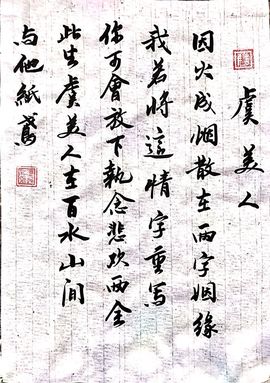 虞美人
因火成烟散在两字姻緣
我若將這情字重写
你可會放下執念悲欢两全
此生虞美人在百水山间
与他紙鳶